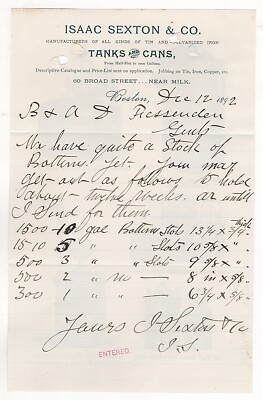 ISAAC SEXTON & CO.
MANUFACTURERS OF ALL KINDS OF TIN AND GALVANIZED IRON
TANKS AND CANS,
From Half-Pint to 1000 Gallons.
Descriptive Catalogue and Price-List sent on application. Jobbing on Tin, Iron, Copper, etc.
60 BROAD STREET... NEAR MILK.
Boston, Dec 12 1892
B & A D Fessenden
Gents
We have quite a Stock of
Bottoms yet. You may
get out as follows & hold
about twelve weeks or until
I send for them
thick
1500 10 gae Bottoms Slots 13 1/4 x 3/4
1510 5 " " Slots 10 5/8 x "
500 3 " " Slots 9 5/8 x "
500 2 " no — 8 in x 5/8
300 1 " " — 6 3/4 x 5/8
Yours I Sexton & Co
I. S.
ENTERED.